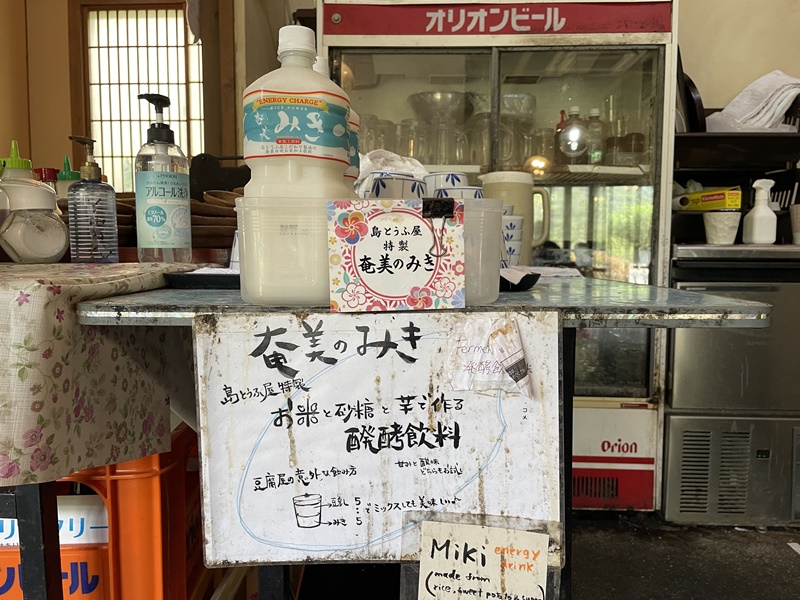 オリオンビール
"ENERGY CHARGE"
RICE POWER
奄美
みき
アルコール洗浄
70%
島とうふ屋
特製
奄美のみき
奄美のみき
島とうふ屋特製
お米と砂糖と芋で作る
醗酵飲料
コメ
甘みと酸味
どちらもお試し
豆腐屋の意外な飲み方
豆乳 5
:でミックスしても美味しいよ
みき 5
Orion
Miki energy
drink
made from
(rice, sweet potato & sugar)
ビール